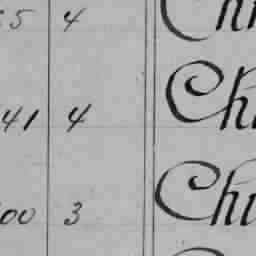 5 4 Ch
41 4 Ch
00 3 Ch